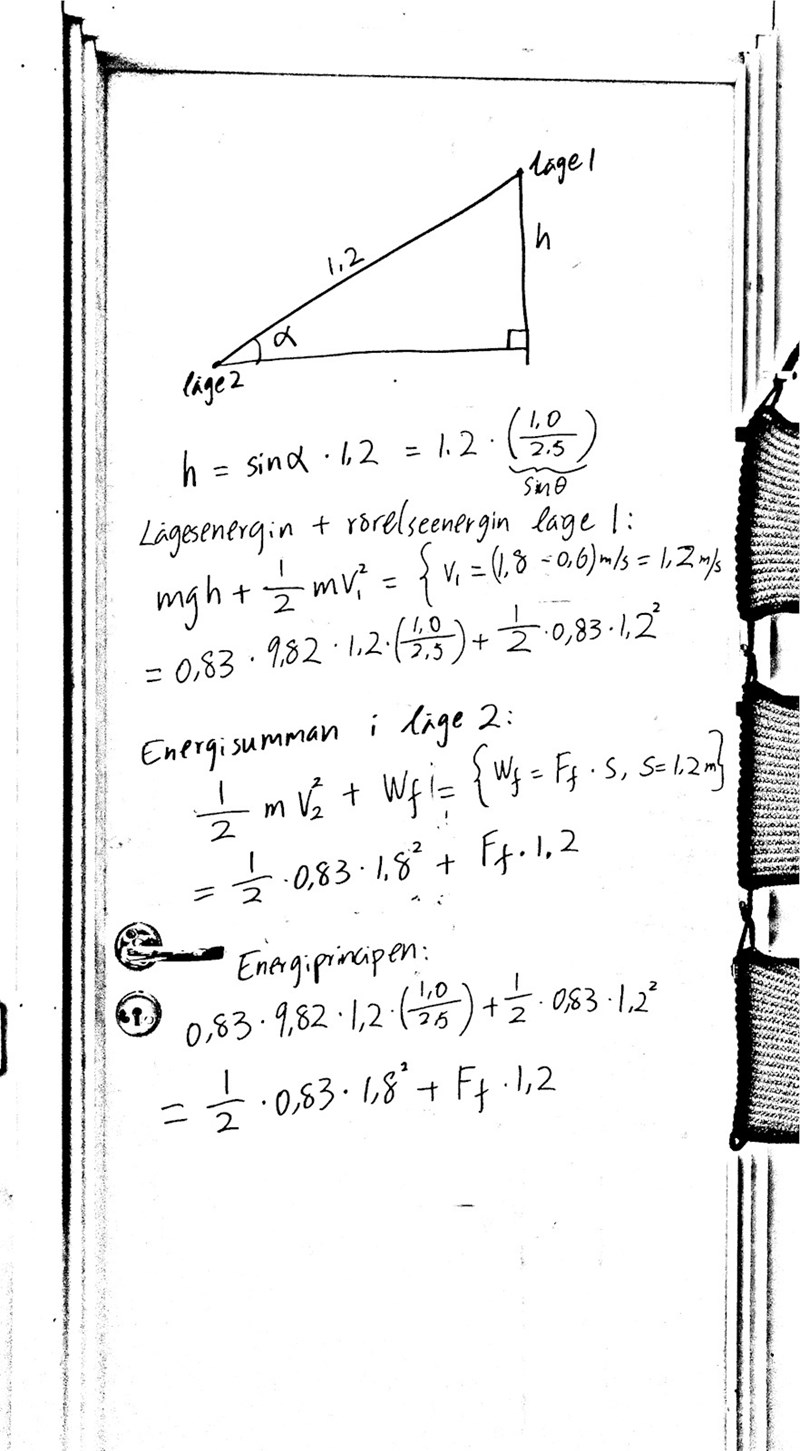 läge 1
1,2
h
α
läge 2
h = sinα · 1,2 = 1.2 · (1,0/2.5)
sinθ
Lägesenergin + rörelseenergin läge 1:
mgh + 1/2 mv₁² = { V₁ = (1,8 - 0,6) m/s = 1,2 m/s
= 0,83 · 9,82 · 1,2 · (1,0/2,5) + 1/2 · 0,83 · 1,2²
Energisumman i läge 2:
1/2 m V₂² + Wf = { Wf = Ff · s, s = 1,2 m}
= 1/2 · 0,83 · 1,8² + Ff · 1,2
Energiprincipen:
0,83 · 9,82 · 1,2 · (1,0/2,5) + 1/2 · 0,83 · 1,2²
= 1/2 · 0,83 · 1,8² + Ff · 1,2